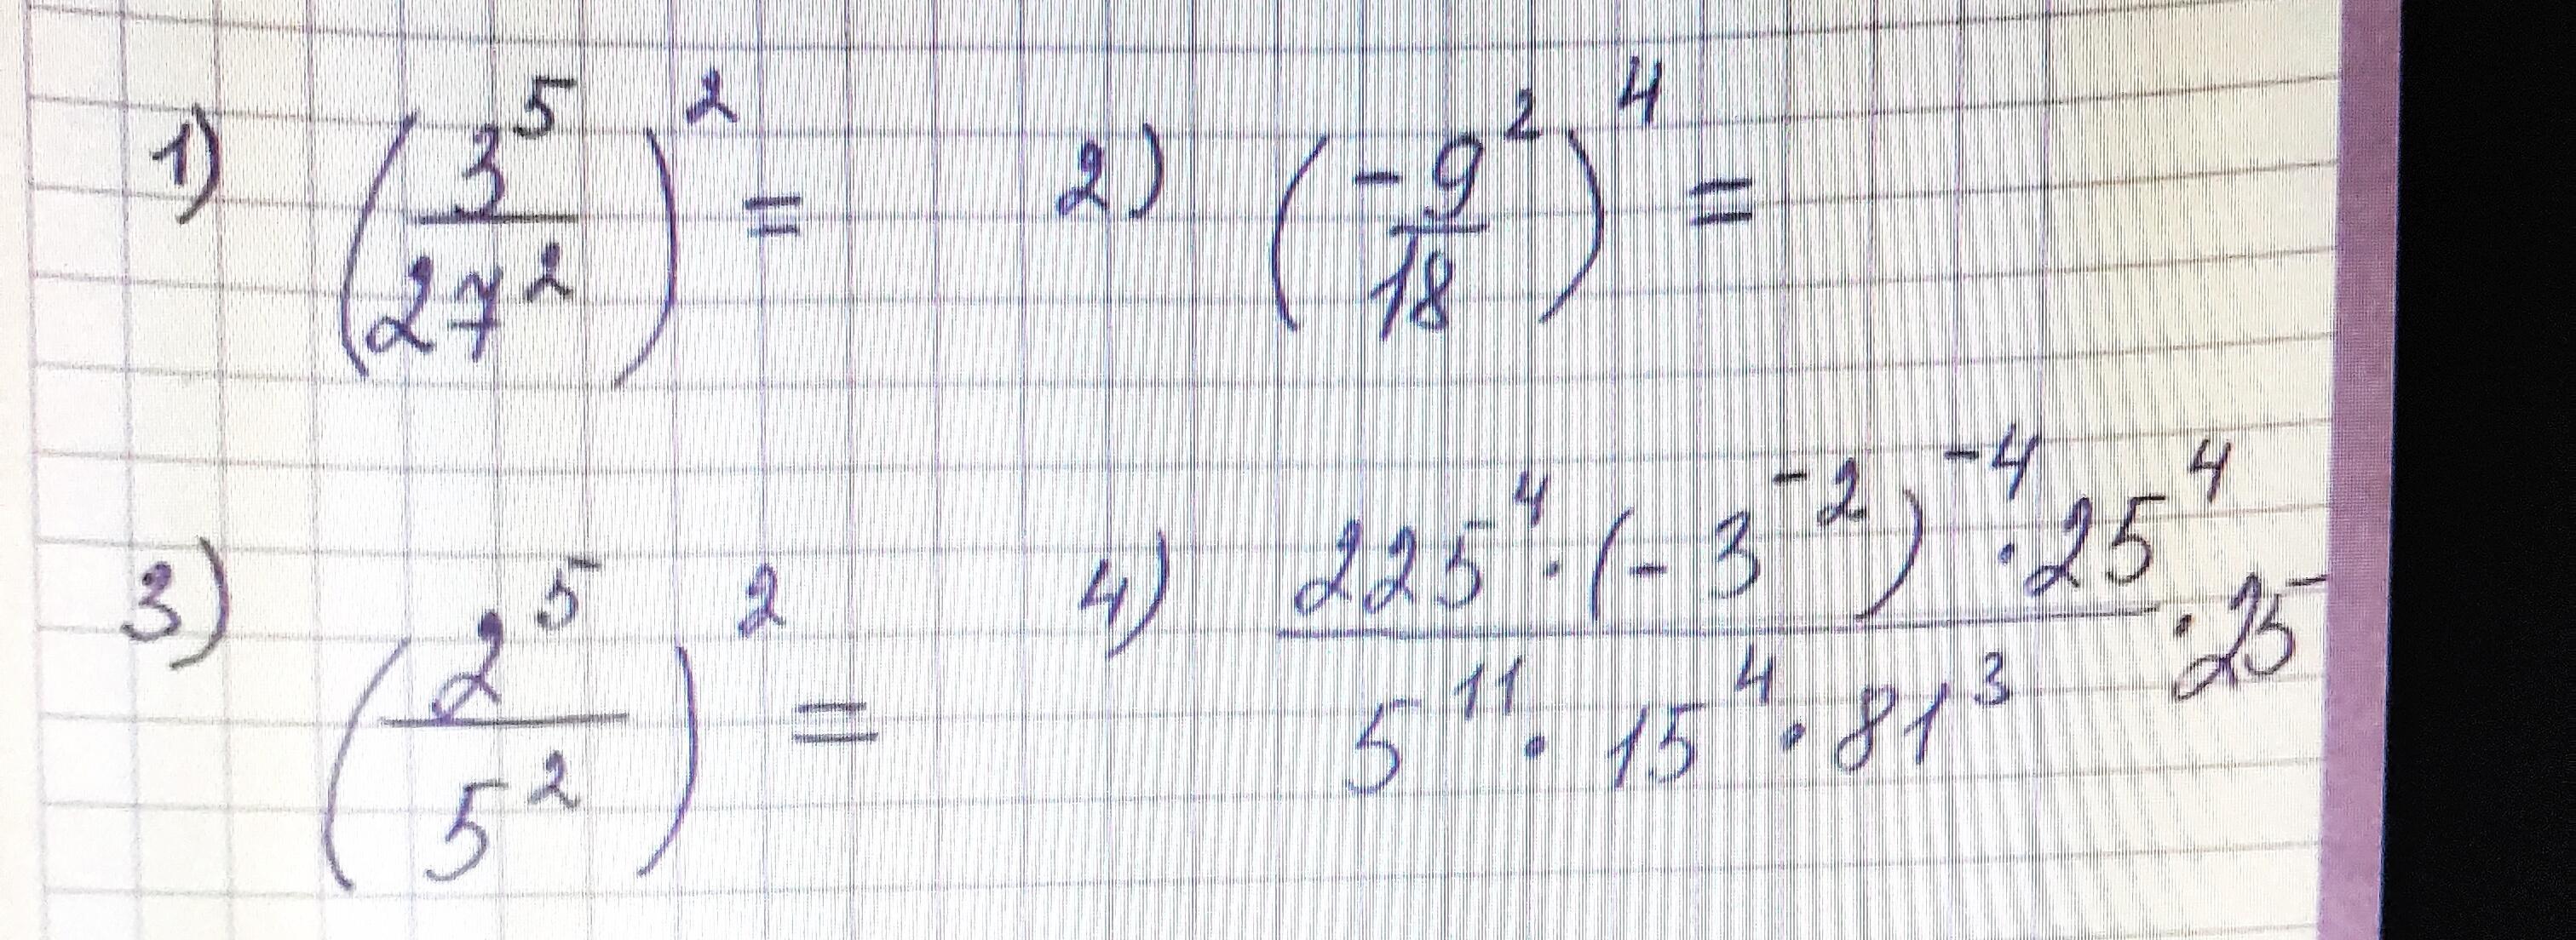 1) (3^5/27^2)^2 = 2) (-9^2/18)^4 =
3) (2^5/5^2)^2 = 4) (225^4 · (-3^-2)^-4 · 25^4)/(5^11 · 15^4 · 81^3) · 25